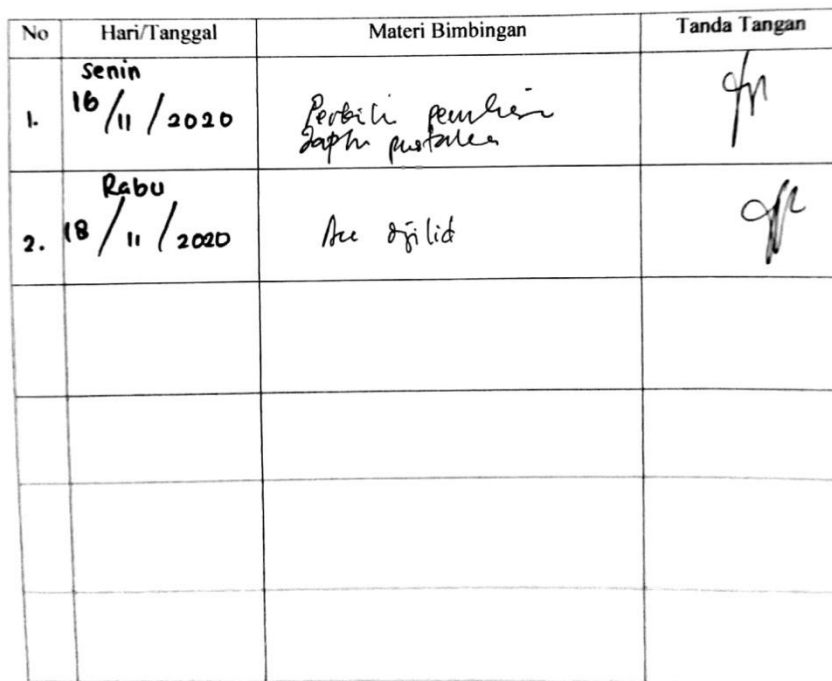 No Hari/Tanggal Materi Bimbingan Tanda Tangan
Senin
1. 16/11/2020 Perbaiki penulisan
daftar pustaka
Rabu
2. 18/11/2020 Acc dijilid